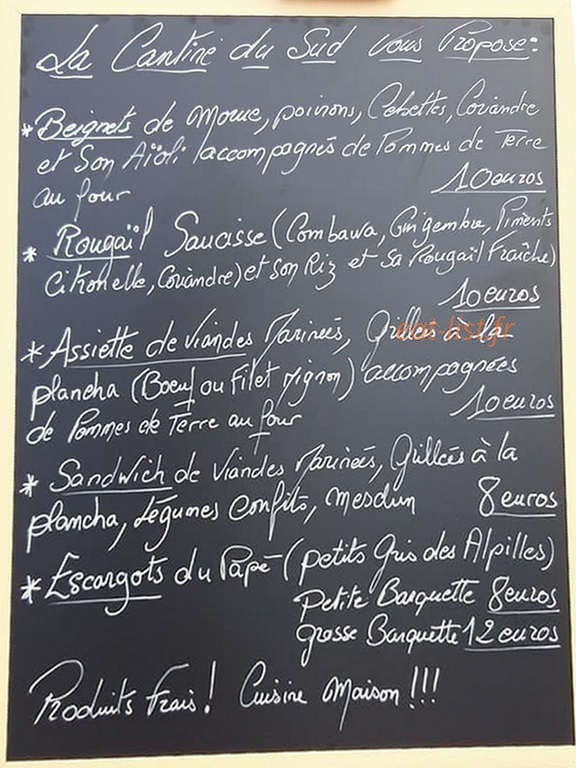 La Cantine du Sud Vous Propose:
* Beignets de Morue, poivrons, Cebettes, Coriandre
et Son Aïoli accompagnés de Pommes de Terre
au four 10 euros
* Rougaïl Saucisse (Combawa, Gingembre, Piments
Citronelle, Coriandre) et son Riz et Sa Rougaïl Fraîche)
10 euros
* Assiette de viandes Marinées, Grillées à la
plancha (Boeuf ou Filet Mignon) accompagnées
de Pommes de Terre au four 10 euros
* Sandwich de Viandes Marinées, Grillées à la
plancha, Légumes Confits, Mesclun 8 euros
* Escargots du Papé - (petits Gris des Alpilles)
Petite Barquette 8 euros
Grosse Barquette 12 euros
Produits Frais! Cuisine Maison!!!